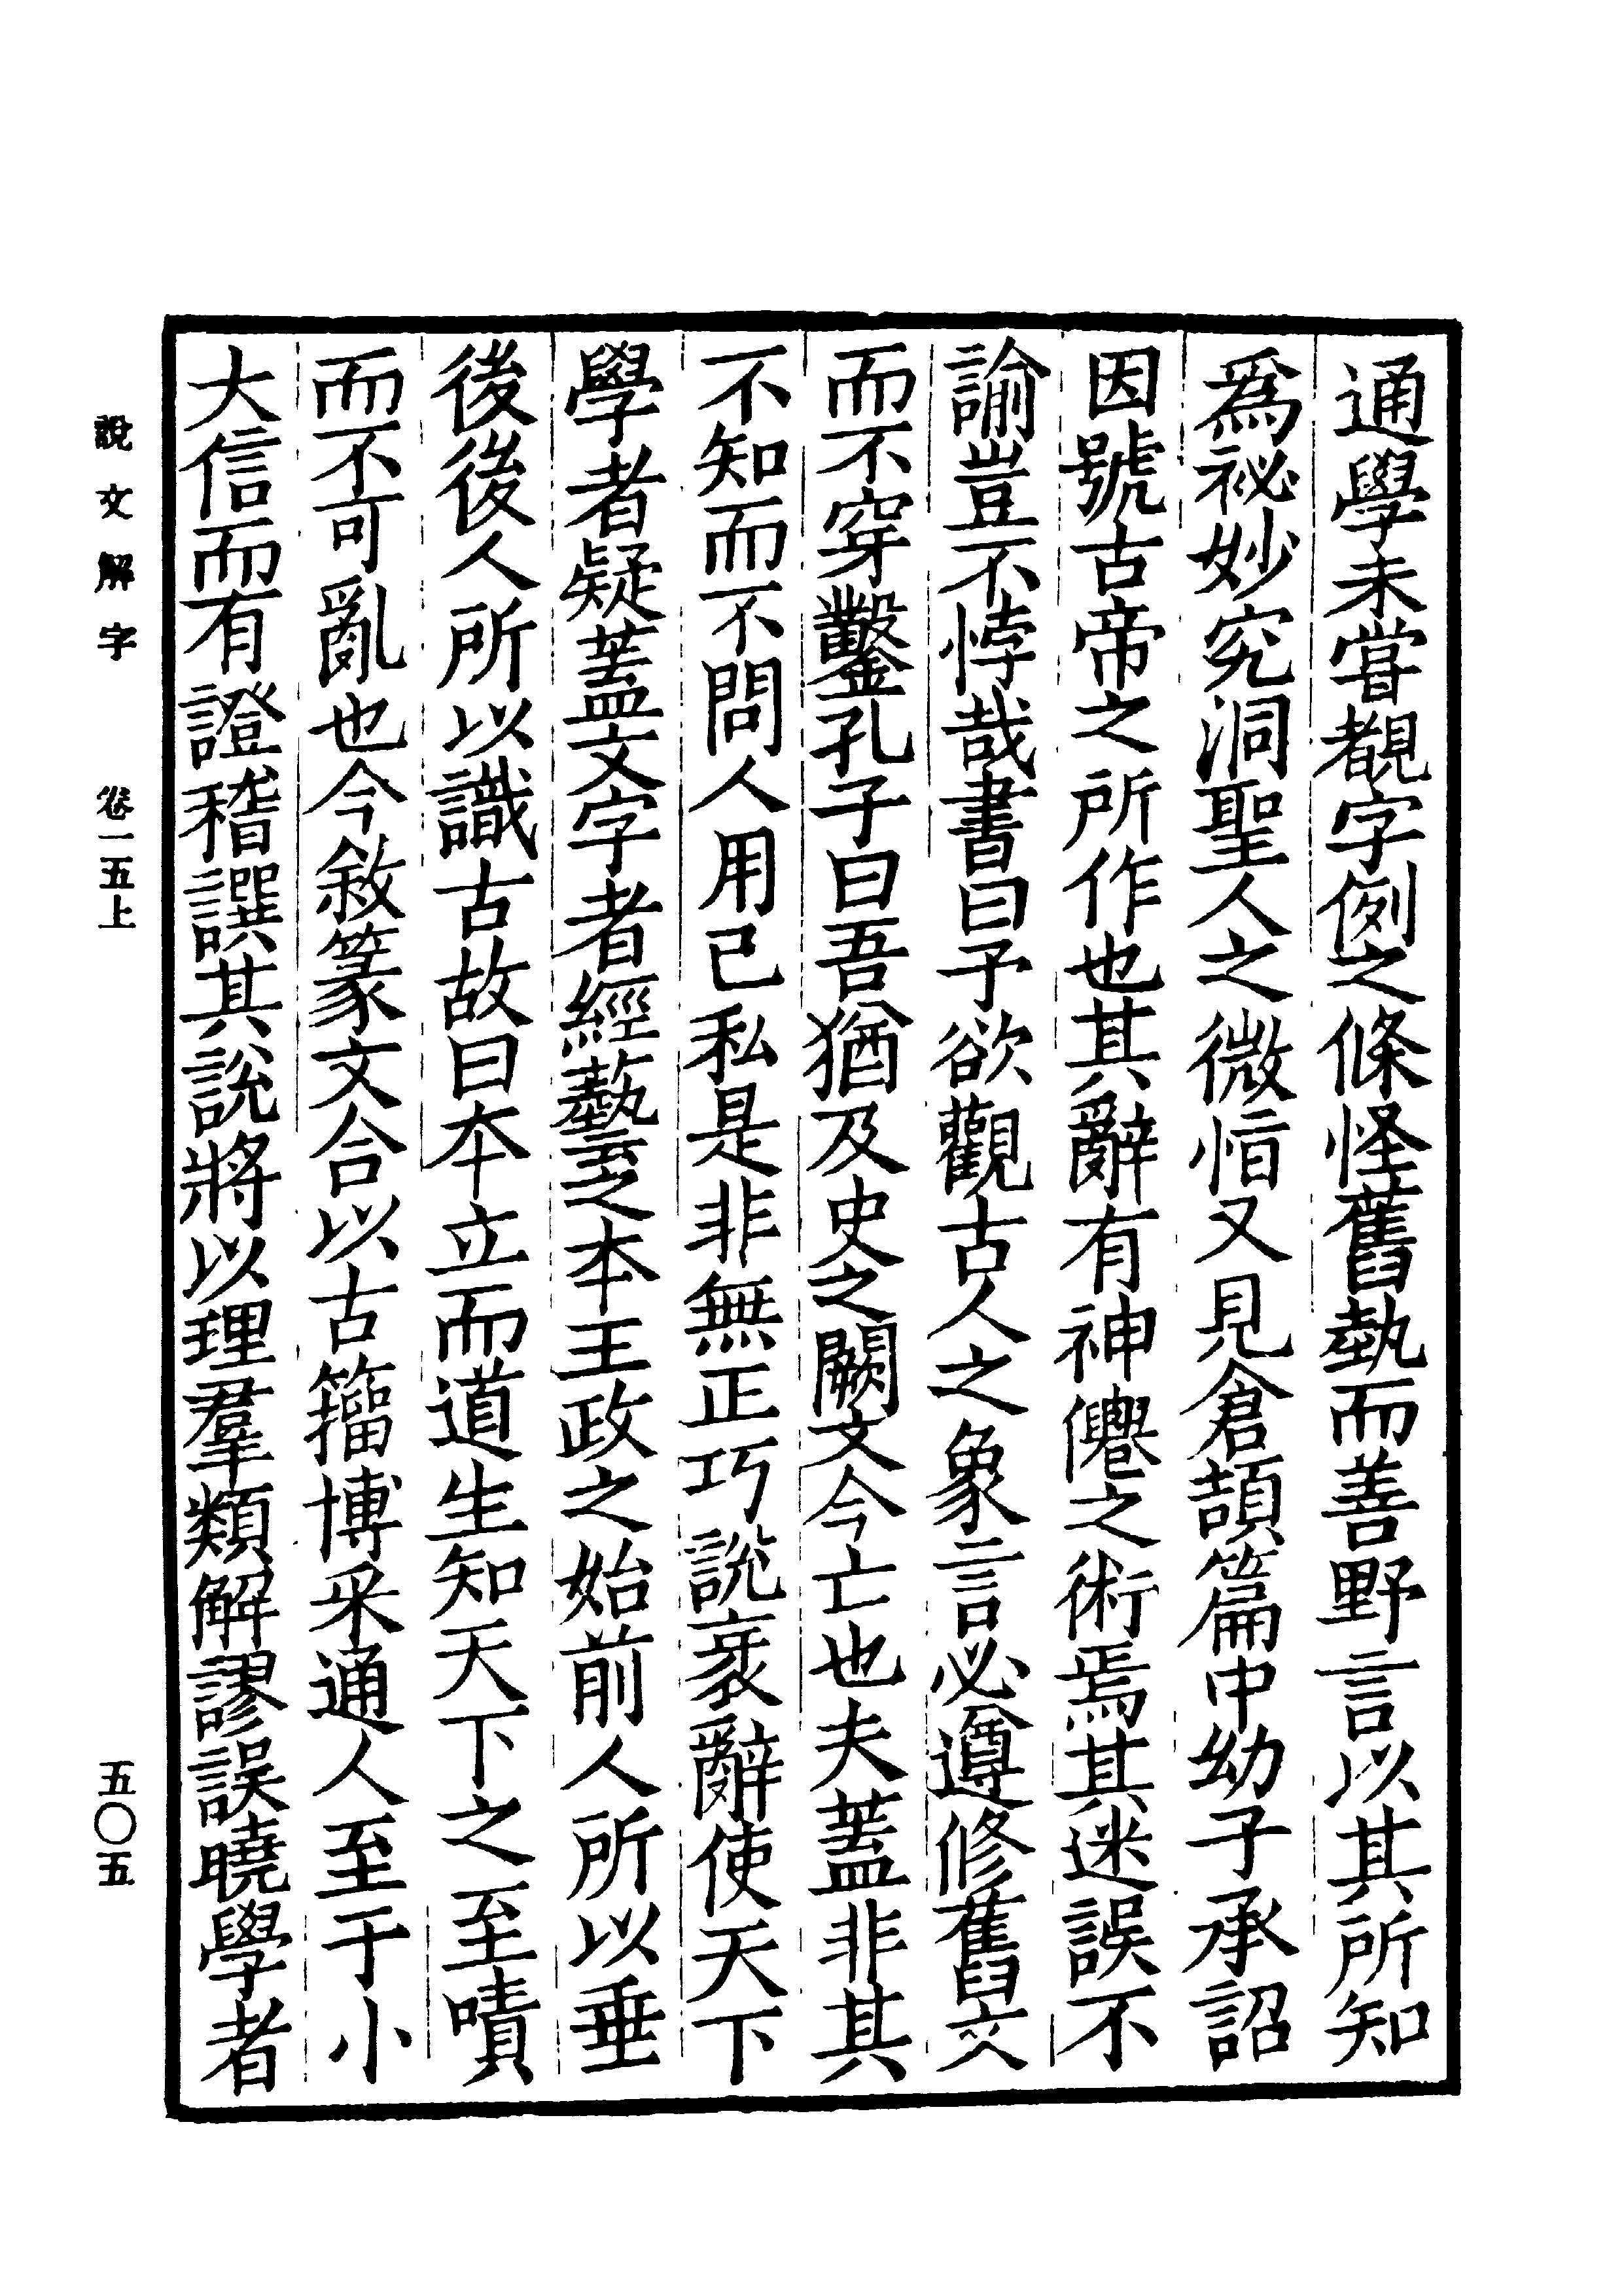 通學未嘗覩字例之條怪舊埶而善野言以其所知
爲祕妙究洞聖人之微恉又見倉頡篇中幼子承詔
因號古帝之所作也其辭有神僊之術焉其迷誤不
諭豈不悖哉書曰予欲觀古人之象言必遵修舊文
而不穿鑿孔子曰吾猶及史之闕文今亡也夫蓋非其
不知而不問人用己私是非無正巧說衺辭使天下
學者疑蓋文字者經藝之本王政之始前人所以垂
後後人所以識古故曰本立而道生知天下之至嘖
而不可亂也今敘篆文合以古籒博采通人至于小
大信而有證稽譔其說將以理羣類解謬誤曉學者
說文解字 卷一五上 五〇五